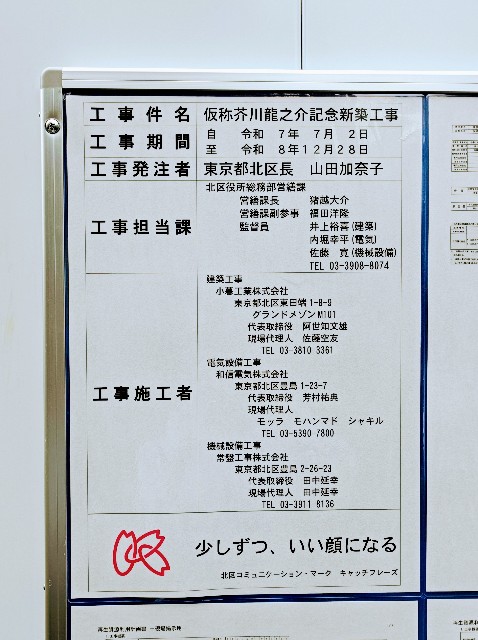 工事件名 仮称芥川龍之介記念新築工事
工事期間 自 令和 7年 7月 2日
至 令和 8年12月28日
工事発注者 東京都北区長 山田加奈子
工事担当課 北区役所総務部営繕課
営繕課長 猪越大介
営繕課副参事 福田洋隆
監督員 井上裕喜(建築)
内堀幸平(電気)
佐藤 寛(機械設備)
TEL 03-3908-8074
工事施工者
建築工事
小暮工業株式会社
東京都北区東田端1-8-9
グランドメゾンM101
代表取締役 阿世知文雄
現場代理人 佐藤空友
TEL 03-3810-3361
電気設備工事
和信電気株式会社
東京都北区豊島1-23-7
代表取締役 芳村祐典
現場代理人
モッラ モハンマド シャキル
TEL 03-5390-7800
機械設備工事
常盤工事株式会社
東京都北区豊島2-26-23
代表取締役 田中延幸
現場代理人 田中延幸
TEL 03-3911-8136
少しずつ、いい顔になる
北区コミュニケーション・マーク キャッチフレーズ